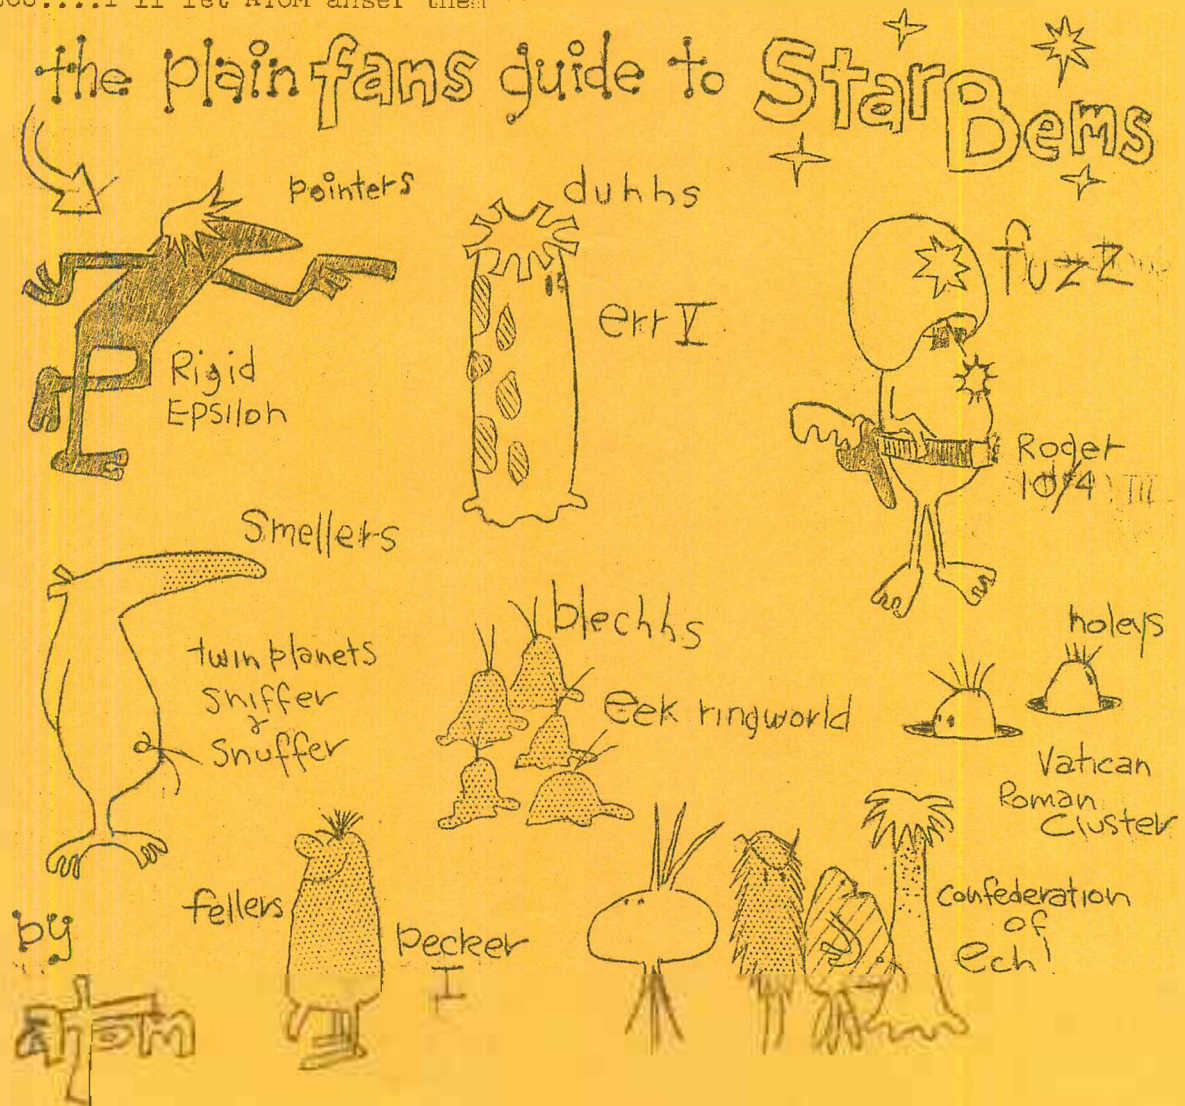 ....I'll let ATOM anser them
the plain fans guide to Star Bems
pointers
Rigid
Epsilon
duhhs
err V
fuzz
Roger
10/4
Smellers
twin planets
sniffer
&
snuffer
blechhs
eek ringworld
holeys
Vatican
Roman
Cluster
fellers
pecker
I
confederation
of
ech!
by
atom